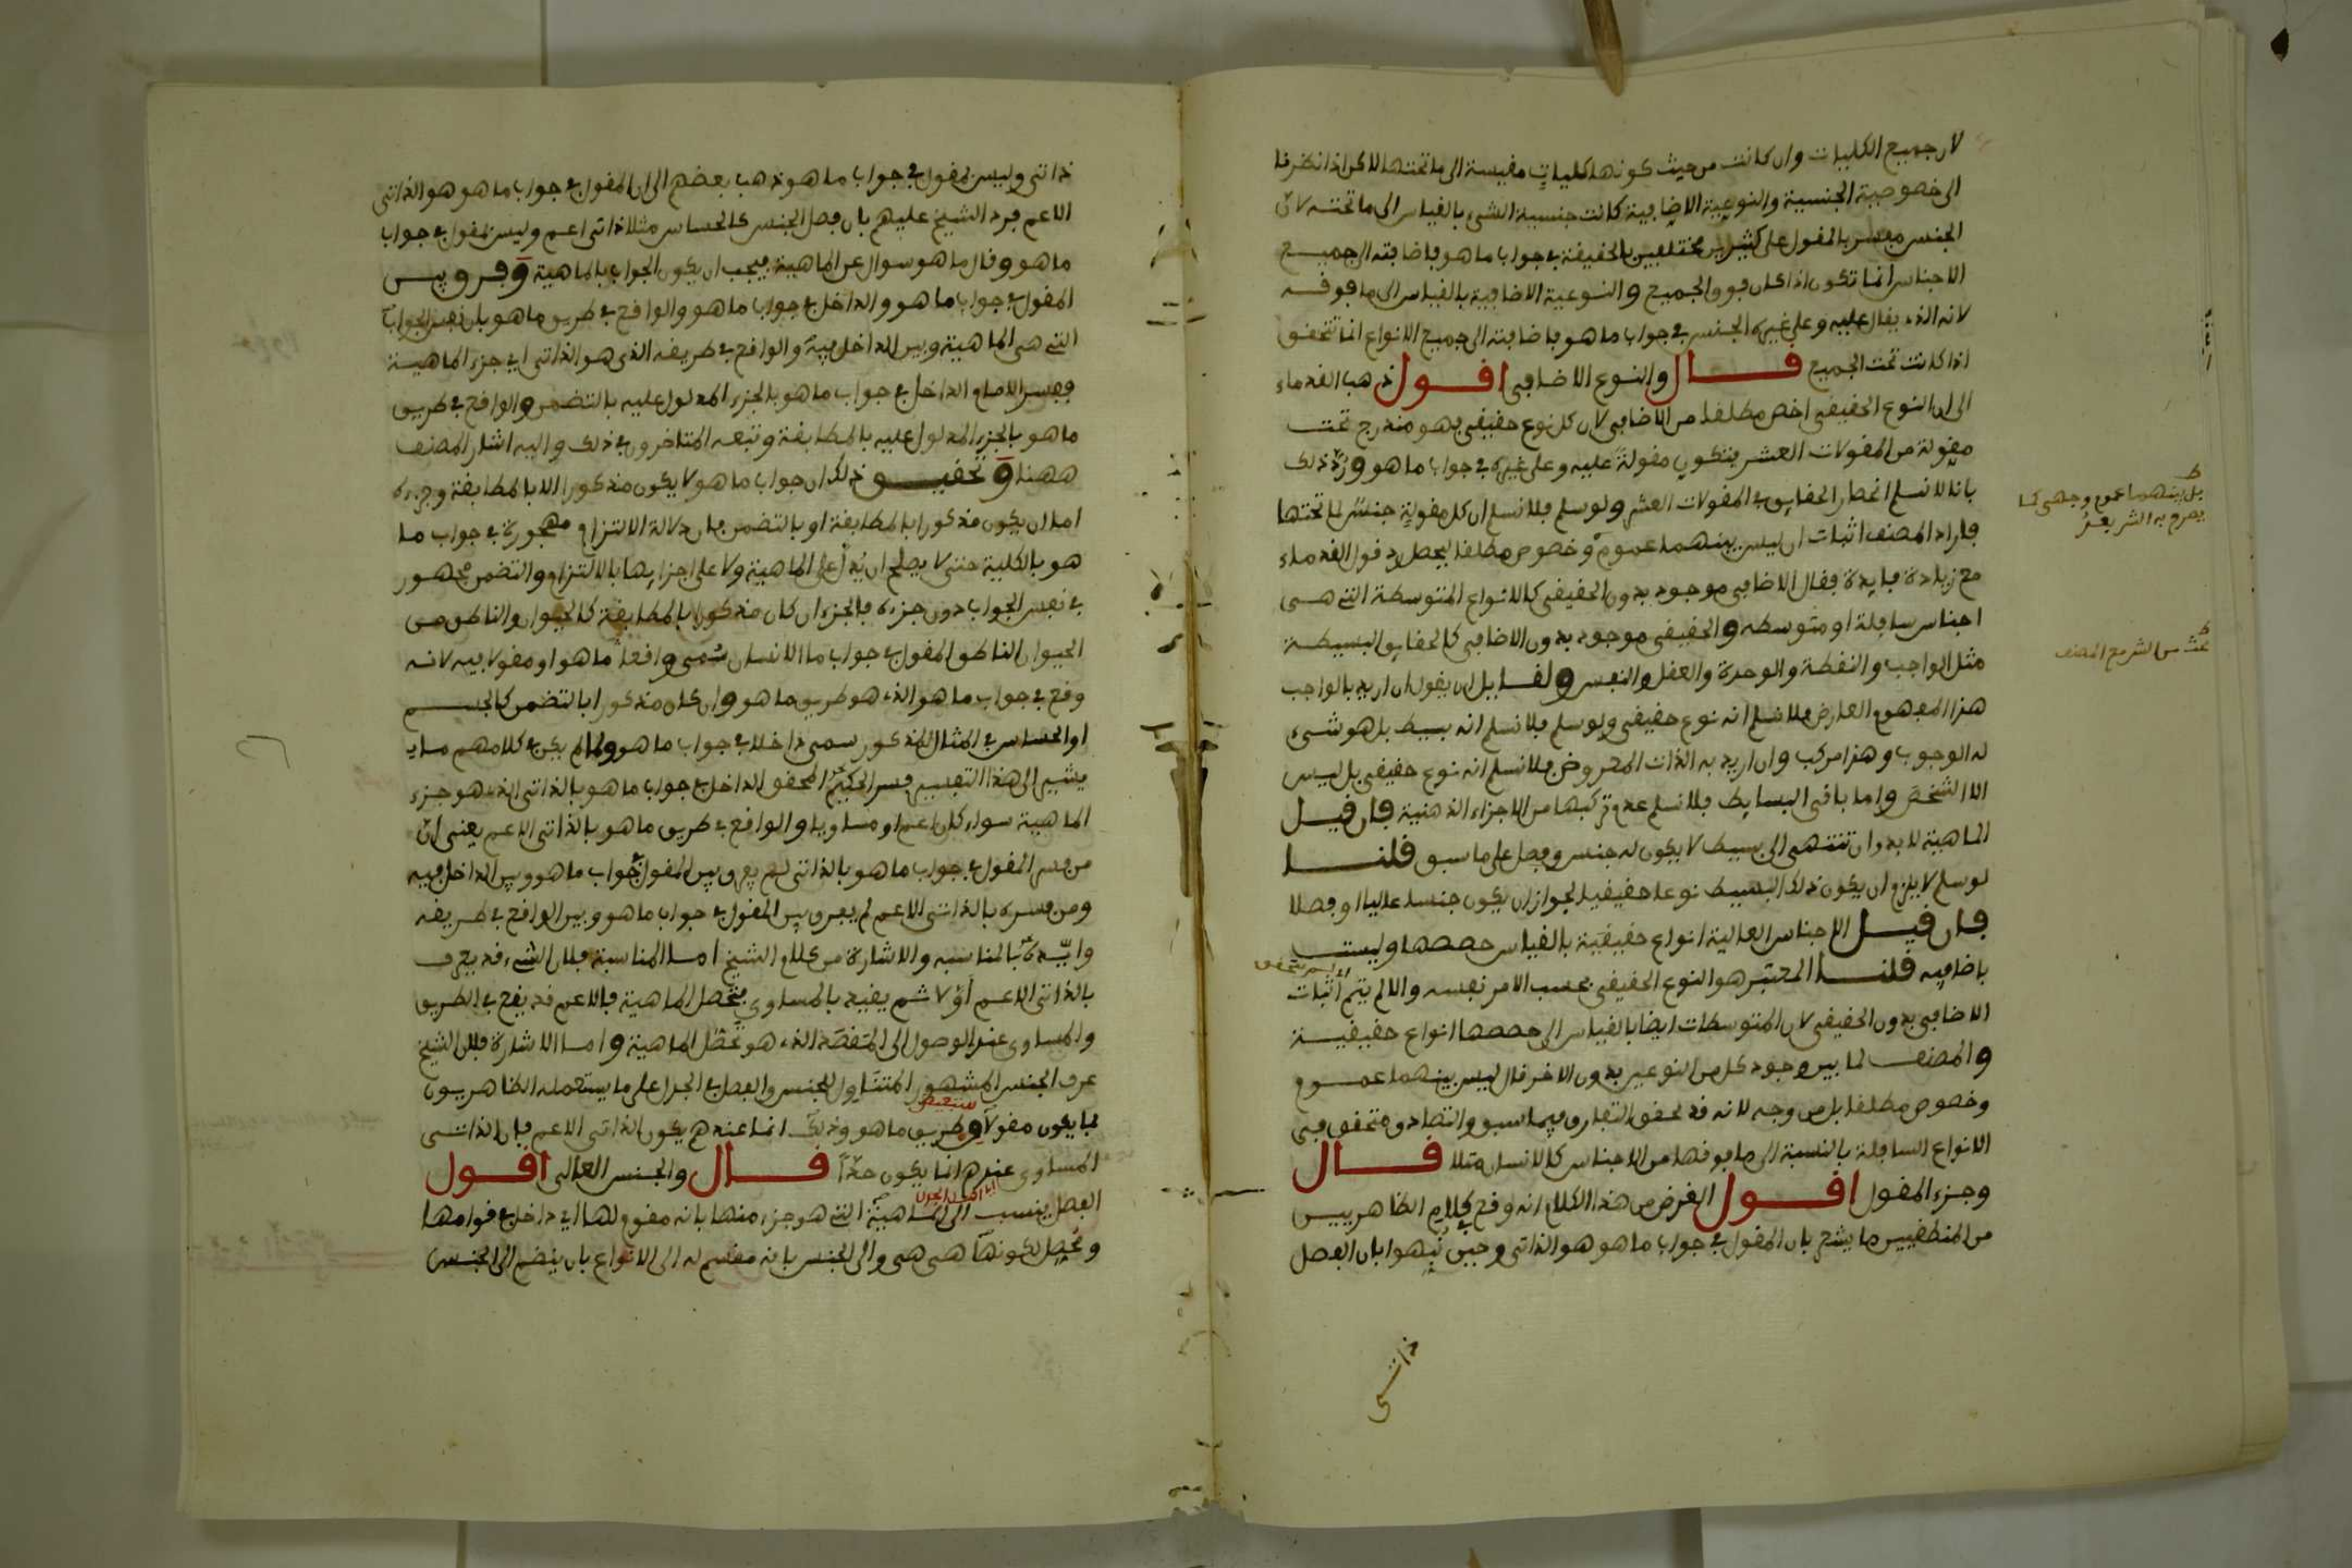 لان جميع الكليات وان كانت من حيث كونها كليات مقيسة الى ما تحتها لاكن اذا نظرنا
الى خصوصية الجنسية والنوعية الاضافية كانت جنسية الشىء بالقياس الى ما تحته لان
الجنس مفسر بالمقول على كثيرين مختلفين بالحقيقة فى جواب ما هو فاضافته الى جميع
الاجناس انما تكون اذا كان فوق الجميع والنوعية الاضافية بالقياس الى ما فوقه
لانه الذى يقال عليه وعلى غيره الجنس فى جواب ما هو فاضافته الى جميع الانواع انما تتحقق
اذا كانت تحت الجميع قال والنوع الاضافى اقول ذهب القدماء
الى ان النوع الحقيقى اخص مطلقا من الاضافى لان كل نوع حقيقى فهو مندرج تحت
مقولة من المقولات العشر فتكون مقولة عليه وعلى غيره فى جواب ما هو ورد ذلك
بانا لا نسلم انحصار الحقايق فى المقولات العشر ولو سلم فلا نسلم ان كل مقولة جنس لما تحتها
فاراد المصنف اثبات ان ليس بينهما عموم وخصوص مطلقا ليحصل رد قول القدماء
مع زيادة فايدة فقال الاضافى موجود بدون الحقيقى كالانواع المتوسطة التى هى
اجناس سافلة او متوسطه والحقيقى موجود بدون الاضافى كالحقايق البسيطة
مثل الواجب والنقطة والوحدة والعقل والنفس ولقايل ان يقول ان اريد بالواجب
هذا المفهوم العارض فلا نسلم انه نوع حقيقى ولو سلم فلا نسلم انه بسيط بل هو شىء
له الوجوب وهذا مركب وان اريد به الذات المعروض فلا نسلم انه نوع حقيقى بل ليس
الا الشخص واما باقى البسايط فلا نسلم عدم تركبها من الاجزاء الذهنية فان قيل
الماهية لا بد وان تنتهى الى بسيط لا يكون له جنس وفصل على ما سبق قلنا
لو سلم لا يلزم ان يكون ذلك البسيط نوعا حقيقيا لجواز ان يكون جنسا عاليا او فصلا
فان قيل الاجناس العالية انواع حقيقية بالقياس حصصها وليست
باضافيه قلنا المعتبر هو النوع الحقيقى بحسب الامر نفسه والا لم يتم اثبات
الاضافى بدون الحقيقى لان المتوسطات ايضا بالقياس الى حصصها انواع حقيقية
والمصنف لما بين وجود كل من النوعين بدون الاخر قال ليس بينهما عموم
وخصوص مطلقا بل من وجه لانه قد تحقق التفارق فيما سبق والتصادق متحقق فى
الانواع السافلة بالنسبة الى ما فوقها من الاجناس كالانسان مثلا قال
وجزء المقول اقول الغرض من هذا الكلام انه وقع فى كلام الظاهريين
من المنطقيين ما يشعر بان المقول فى جواب ما هو هو الذاتى وحين نبهوا بان الفصل
ذاتى
بل بينهما عموم وجهى كما
يصرح به الشريف
بحث من الشريف المصنف
ذاتى وليس بمقول فى جواب ما هو ذهب بعضهم الى ان المقول فى جواب ما هو هو الذاتى
الاعم فرد الشيخ عليهم بان فصل الجنس كالحساس مثلا ذاتى اعم وليس بمقول فى جواب
ما هو وقال ما هو سوال عن الماهية فيجب ان يكون الجواب بالماهية وفرق بين
المقول فى جواب ما هو والداخل فى جواب ما هو والواقع فى طريق ما هو بان نفس الجواب
التى هى الماهية وبين الداخل فيه والواقع فى طريقه الذى هو الذاتى اى جزء الماهية
ففسر الامام الداخل فى جواب ما هو بالجزء المدلول عليه بالتضمن والواقع فى طريق
ما هو بالجزء المدلول عليه بالمطابقة وتبعه المتاخرون فى ذلك واليه اشار المصنف
ههنا وتحقيق ذلك ان جواب ما هو لا يكون مذكورا الا بالمطابقة وجزءه
اما ان يكون مذكورا بالمطابقة او بالتضمن فان دلالة الالتزام مهجورة فى جواب ما
هو بالكلية حتى لا يصلح ان يدل على الماهية ولا على اجزايها بالالتزام والتضمن مهجور
فى نفس الجواب دون جزءه فالجزء ان كان مذكورا بالمطابقة كالحيوان والناطق من
الحيوان الناطق المقول فى جواب ما الانسان سمى واقعا ما هو او مقولا فيه لانه
وقع فى جواب ما هو الذى هو طريق ما هو وان كان مذكورا بالتضمن كالجسم
او الحساس فى المثال المذكور سمى داخلا فى جواب ما هو ولما لم يكن فى كلامهم ما
يشير الى هذا التقسيم فسر الحكيم المحقق الداخل فى جواب ما هو بالذاتى الذى هو جزء
الماهية سواء كان اعم او مساويا والواقع فى طريق ما هو بالذاتى الاعم يعنى ان
من فسر المقول فى جواب ما هو بالذاتى لم يفرق بين المقول فى جواب ما هو وبين الداخل فيه
ومن فسره بالذاتى الاعم لم يفرق بين المقول فى جواب ما هو وبين الواقع فى طريقه
وايده بالمناسبه والاشارة من كلام الشيخ اما المناسبة فلان الشىء قد يعرف
بالذاتى الاعم اولا ثم يقيد بالمساوى فتحصل الماهية فالاعم قد يقع فى الطريق
والمساوى عند الوصول الى المقصد الذى هو تحصل الماهية واما الاشارة فلان الشيخ
عرف الجنس المشهور المتناول للجنس والفصل فى الجدل على ما يستعمله الظاهريون
بما يكون مقولا فى طريق ما هو وذلك انما عندهم يكون الذاتى الاعم فان الذاتى
المساوى عندهم انما يكون حدا قال والجنس العالى اقول
الفصل ينسب الى الماهية التى هو جزء منها بانه مقوم لها اى داخل فى قوامها
ومحصل لكونها هى هى والى الجنس بانه مقسم له الى الانواع بان ينضم الى الجنس